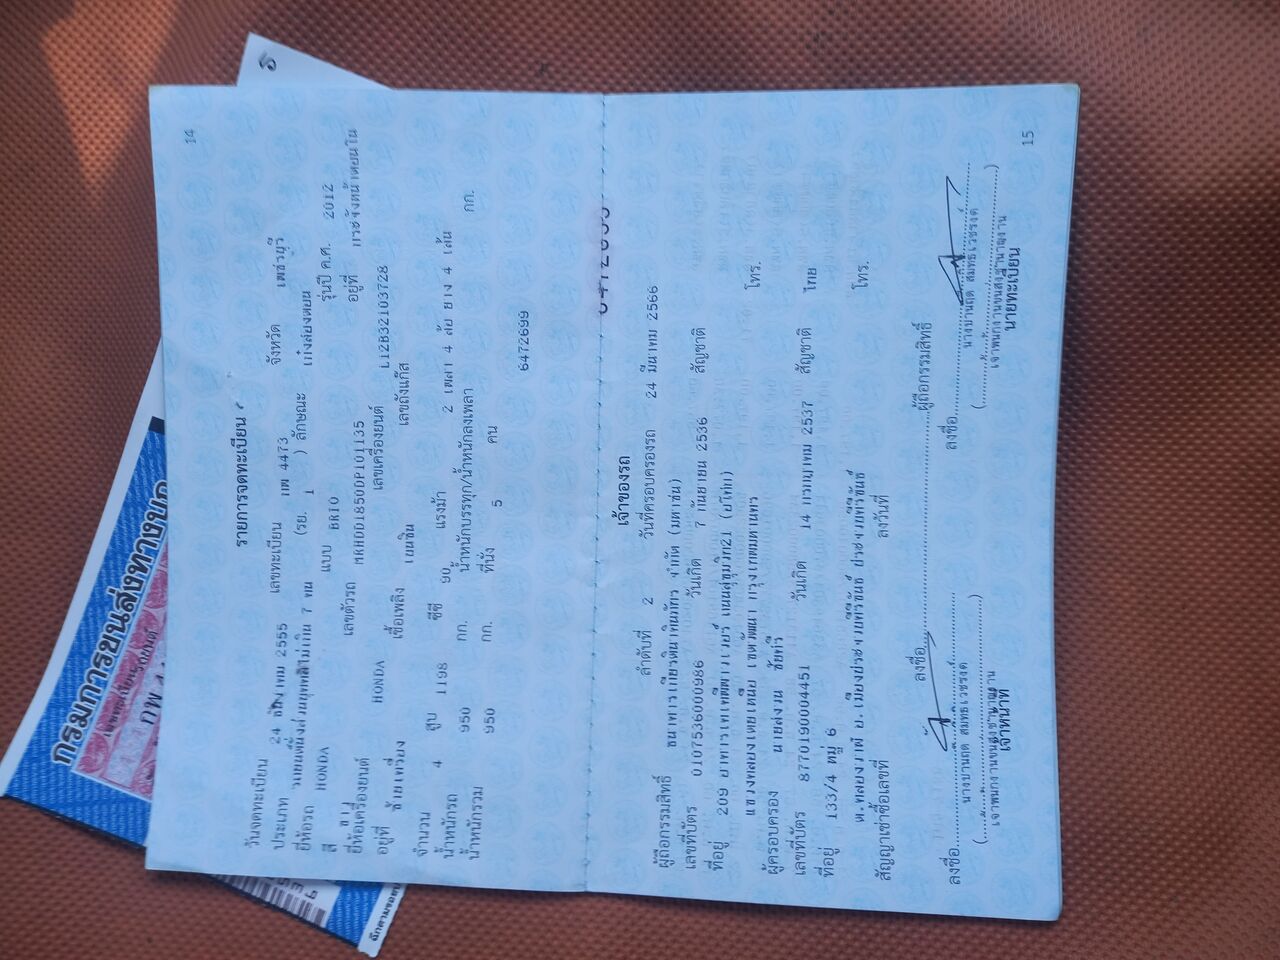 14
รายการจดทะเบียน
วันจดทะเบียน 24 ธันวาคม 2555 เลขทะเบียน กพ 4473 จังหวัด เพชรบุรี
ประเภท รถยนต์นั่งส่วนบุคคลไม่เกิน 7 คน (รย. 1 ) ลักษณะ เก๋งสองตอน
ยี่ห้อรถ HONDA แบบ BRIO รุ่นปี ค.ศ. 2012
สี เลขตัวรถ MRHDD1850DP101135 อยู่ที่ กระจังหน้าเหนือใน
ยี่ห้อเครื่องยนต์ HONDA เลขเครื่องยนต์ L12B32103728
อยู่ที่ ซ้ายเครื่อง เชื้อเพลิง เบนซิน เลขถังแก๊ส
จำนวน 4 สูบ 1198 ซีซี 90 แรงม้า 2 เพลา 4 ล้อ ยาง 4 เส้น
น้ำหนักรถ 950 กก. น้ำหนักบรรทุก/น้ำหนักลงเพลา กก.
น้ำหนักรวม 950 กก. ที่นั่ง 5 คน
6472699
เจ้าของรถ
ลำดับที่ 2 วันที่ครอบครองรถ 24 มีนาคม 2566
ผู้ถือกรรมสิทธิ์ ธนาคารเกียรตินาคินภัทร จำกัด (มหาชน)
เลขที่บัตร 0107536000986 วันเกิด 7 กันยายน 2536 สัญชาติ
ที่อยู่ 209 อาคารเคเคพีทาวเวอร์ ถนนสุขุมวิท21 (อโศก)
แขวงคลองเตยเหนือ เขตวัฒนา กรุงเทพมหานคร โทร.
ผู้ครอบครอง นายสงวน
เลขที่บัตร 8770190004451 วันเกิด 14 กรกฎาคม 2537 สัญชาติ ไทย
ที่อยู่ 133/4 หมู่ 6
ต.คลองวาฬ อ.เมืองประจวบคีรีขันธ์ ประจวบคีรีขันธ์ โทร.
สัญญาเช่าซื้อเลขที่ ลงวันที่
ลงชื่อ ผู้ถือกรรมสิทธิ์
ลงชื่อ ลงชื่อ
เจ้าหน้าที่ นายทะเบียน
15
กรมการขนส่งทางบก
เลขทะเบียนรถยนต์
กพ